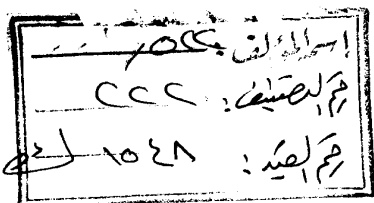 إسم المؤلف
رقم التصنيف: ٢٢٢
رقم القيد: ١٥٤٨